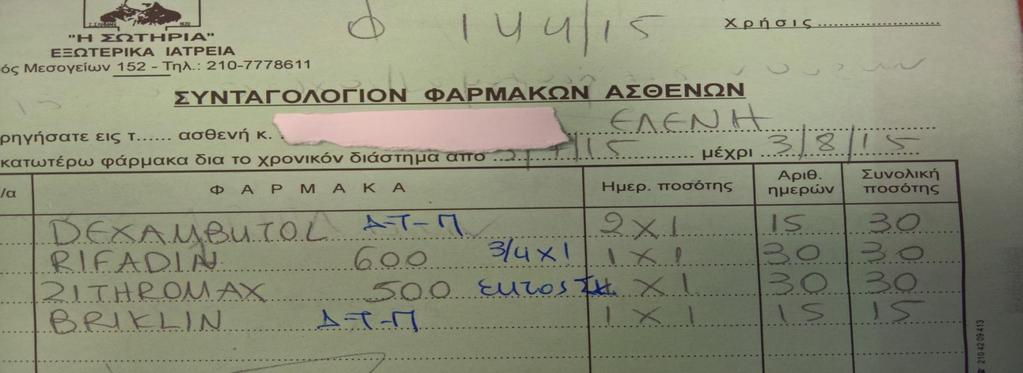 "Η ΣΩΤΗΡΙΑ"
ΕΞΩΤΕΡΙΚΑ ΙΑΤΡΕΙΑ
ός Μεσογείων 152 - Τηλ.: 210-7778611
Φ 144/15
Χρήσις
ΣΥΝΤΑΓΟΛΟΓΙΟΝ ΦΑΡΜΑΚΩΝ ΑΣΘΕΝΩΝ
ρηγήσατε εις τ...... ασθενή κ. ΕΛΕΝΗ
κατωτέρω φάρμακα δια το χρονικόν διάστημα από /15 μέχρι 3/8/15
/α Φ Α Ρ Μ Α Κ Α Ημερ. ποσότης Αριθ. ημερών Συνολική ποσότης
DEXAMBUTOL Δ-Τ-Π 2X1 15 30
RIFADIN 600 3/4X1 1X1 30 30
ZITHROMAX 500 X1 30 30
BRIKLIN Δ-Τ-Π 1X1 15 15
210 42 09 413